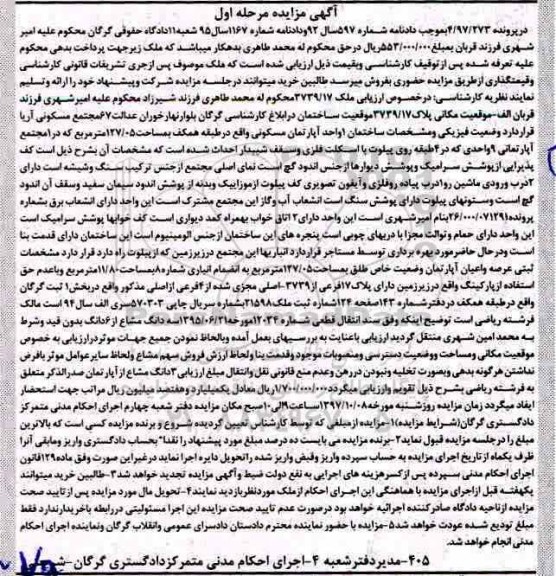 آگهی مزایده مرحله اول
درپرونده ۴/۹۷/۲۷۳بموجب دادنامه شماره ۵۹۷سال ۹۲ودادنامه شماره ۱۱۶۷سال۹۵ شعبه۱۱دادگاه حقوقی گرگان محکوم علیه امیر
شهری فرزند قربان بمبلغ۵۵۳/۰۰۰/۰۰۰ریال درحق محکوم له محمد طاهری بدهکار میباشدکه ملک زیرجهت پرداخت بدهی محکوم
علیه تعرفه شده پس از توقیف کارشناسی وبقیمت ذیل ارزیابی شده است که ملک موصوف پس ازجری تشریفات قانونی کارشناسی
وقیمتگذاری ازطریق مزایده حضوری بفروش میرسد طالبین خرید میتوانند درجلسه مزایده شرکت وپیشنهاد خود را ارائه وتسلیم
نمایند نظریه کارشناسی: درخصوص ارزیابی ملک ۳۷۳۹/۱۷محکوم له محمد طاهری فرزند شیرزاد محکوم علیه امیرشهری فرزند
قربان الف-موقعیت مکانی پلاک۳۷۳۹/۱۷موقعیت ساختمان درابلاغ کارشناسی گرگان بلوارنهارخوران عدالت۶۷مجتمع مسکونی آریا
قرارداردد وضعیت فیزیکی ومشخصات ساختمان ۱واحد آپارتمان مسکونی واقع درطبقه همکف بمساحت۱۲۷/۰۵مترمربع که در۱مجتمع
آپارتمانی ۹واحدی که در۴طبقه روی پیلوت با اسکلت فلزی وسقف شیبدار احداث شده است که مشخصات آن بشرح ذیل است کف
پذیرایی ازپوشش سرامیک وپوشش دیوارها ازجنس اندود گچ است نمای اصلی مجتمع ازجنس ترکیب سنگ وشیشه است دارای
۲درب ورودی ماشین رو۱درب پیاده روفلزی وآیفون تصویری کف پیلوت ازموزاییک وبدنه از پوشش اندود سیمان سفید وسقف آن اندود
گچ است وستونهای پیلوت دارای پوشش سنگ است انشعاب آب وگاز این مجتمع مشترک است این واحد دارای انشعاب برق بشماره
پرونده۲۶/۰۰۰/۰۷۱۲۹۱بنام امیرشهری است این واحد دارای۲ اتاق خواب بهمراه کمد دیواری است کف خوابها پوشش سرامیک است
این واحد دارای حمام وتوالت مجزا با دربهای چوبی است پنجره های این ساختمان ازجنس الومینیوم است این ساختمان دارای قدمت بنا
است ودرحال حاضرمورد بهره برداری توسط مستاجر قراردارد انباربها این مجتمع درزیرزمین که ازپیلوت راه دارد قرار دارد مشخصات
ثبتی عرصه واعیان آپارتمان وضعیت خاص طلق بمساحت۱۲۷/۰۵مترمربع به انضمام انباری شماره۸بمساحت۱۱/۸۰مترمربع وباعدم حق
استفاده ازپارکینگ واقع درزیرزمین دارای پلاک۱۷فرعی از۳۷۳۹-اصلی مجزی شده از۴فرعی ازاصلی مذکور واقع دربخش۱ ثبت گرگان
واقع درطبقه همکف دردفترشماره ۱۴۳صفحه ۱۲۴شماره ثبت ملک۲۱۵۹۸بشماره سریال چاپی ۵۷۰۳۰۳سری الف سال۹۴ است مالک
فرشته ریاضی است توضیح اینکه وفق سند انتقال قطعی شماره ۱۲۰۳۴مورخه۱۳۹۵/۰۶/۲۱سه دانگ مشاع از۶دانگ بدون قید وشرط
به محمد امین شهری منتقل گردید ارزیابی باعنایت به بررسیهای بعمل آمده وبالحاظ نمودن جمیع جهات موثردرارزیابی به خصوص
موقعیت مکانی ومساحت ووضعیت دسترسی ومنصوبات موجود وقدمت بنا ولحاظ ارزش فروش سهم مشاع ولحاظ سایرعوامل موثر بافرض
نداشتن هرگونه بدهی وبصورت تخلیه ونبودن دررهن وعدم منع قانونی نقل وانتقال مبلغ ارزیابی۳دانگ مشاع از آپارتمان صدرالذکر متعلق
به فرشته ریاضی بشرح ذیل تقویم وارزیابی میگردد۱/۷۰۰/۰۰۰/۰۰۰ریال معادل یکمیلیارد وهفتصد میلیون ریال مراتب جهت استحضار
ایفاد میگردد زمان مزایده روزشنبه مورخه۱۳۹۷/۱۰/۰۸ساعت۹الی۱۰صبح مکان مزایده دفتر شعبه چهارم اجرای احکام مدنی متمرکز
دادگستری گرگان(شرایط مزایده)۱-مزایده ازمبلغی که توسط کارشناس تعیین گردیده شروع و برنده مزایده کسی است که بالاترین
مبلغ را درجلسه مزایده قبول نماید۲-برنده مزایده می بایست ده درصد مبلغ مورد پیشنهاد را نقدا" بحساب دادگستری واریز ومابقی آنرا
ظرف یکماه از تاریخ اجرای مزایده به حساب سپرده واریز وفیش واریز شده راتحویل دایره اجرا نماید درغیراین صورت وفق ماده۱۲۹قانون
اجرای احکام مدنی سپرده پس ازکسرهزینه های اجرایی به نفع دولت ضبط وآگهی مزایده تجدید خواهد شد۳-طالبین خرید میتوانند
یکهفته قبل ازاجرای مزایده با هماهنگی این اجرای احکام ازملک موردنظربازدید نمایند۴-تحویل مال مورد مزایده پس از تایید صحت
مزایده ازناحیه دادگاه صادرکننده اجرائیه خواهد بود درصورت عدم تایید صحت مزایده این اجرا مسئولیتی دررابطه باخریدارندارد فقط
مبلغ تودیع شده عودت خواهد شد۵-مزایده با حضور نماینده محترم دادستان دادسرای عمومی وانقلاب گرگان ونماینده اجرای احکام
مدنی انجام خواهد شد.
۴۰۵-مدیردفترشعبه ۴-اجرای احکام مدنی متمرکزدادگستری گرگان-